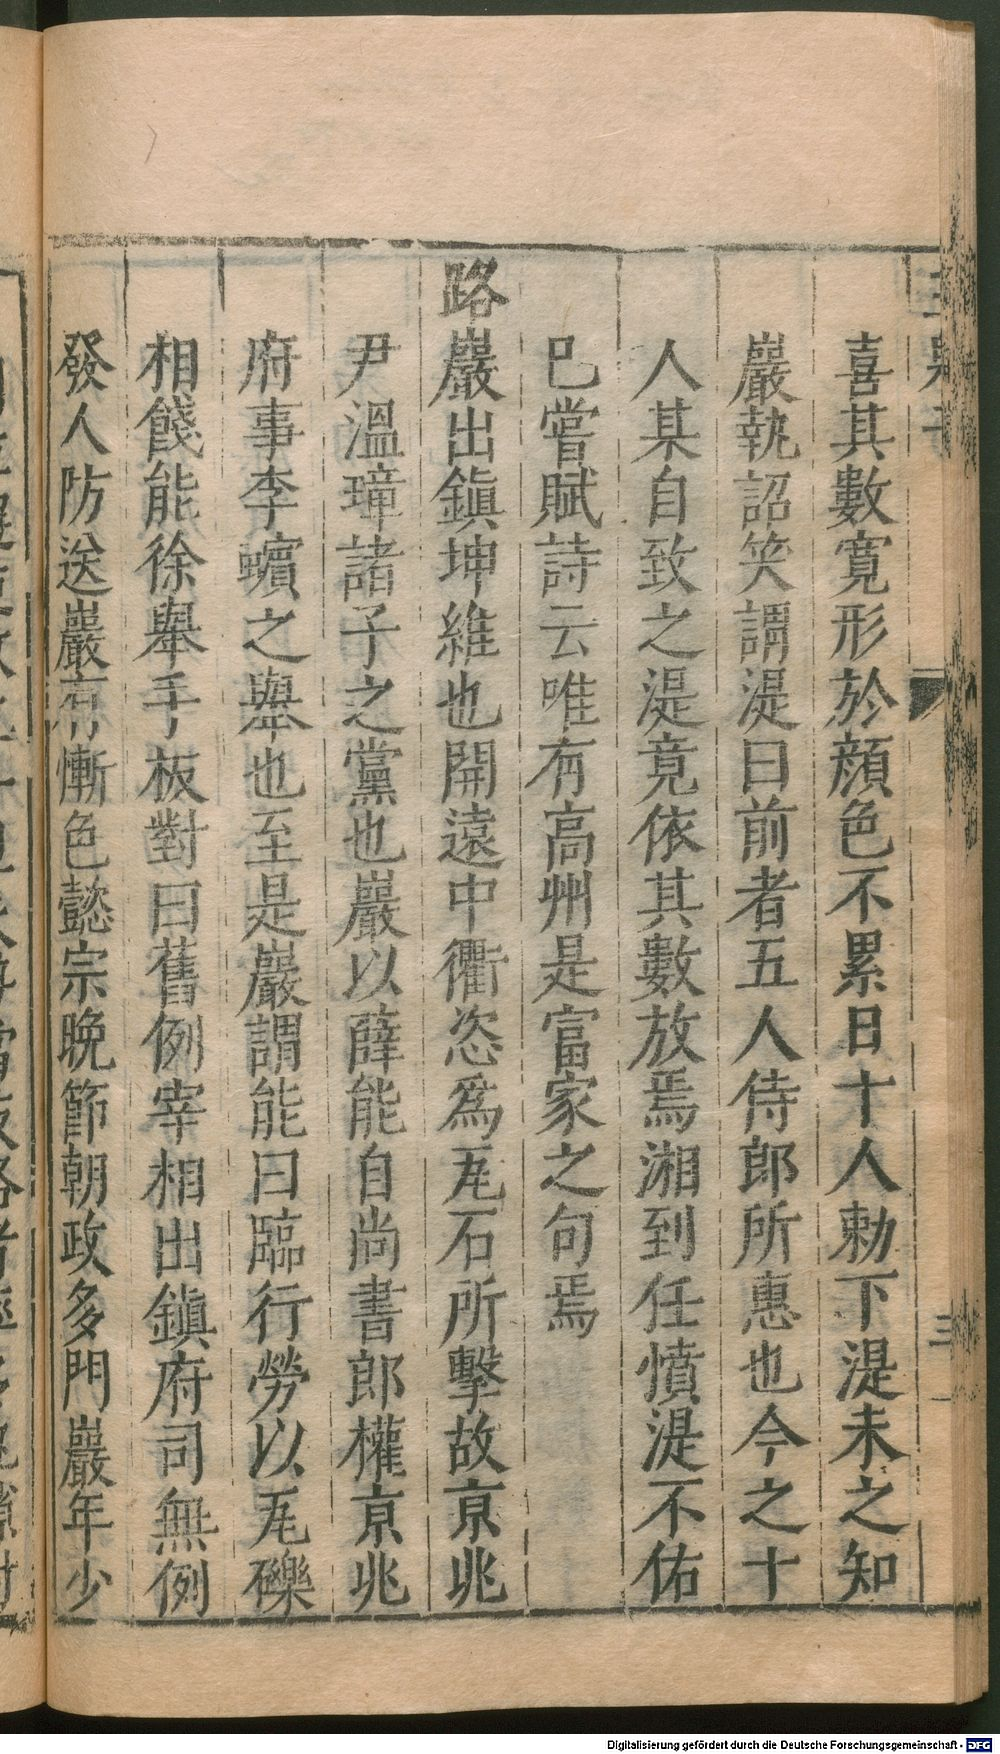 喜其數寬形於顔色不累日十人勅下湜未之知
巖執詔笑謂湜曰前者五人侍郎所惠也今之十
人某自致之湜竟依其數放焉湘到任憤湜不佑
巳嘗賦詩云唯有高州是富家之句焉
路巖出鎮坤維也開遠中衢恣爲瓦石所擊故亰兆
尹溫璋諸子之黨也巖以薛能自尚書郎權亰兆
府事李蠙之舉也至是巖謂能曰臨行勞以瓦礫
相餞能徐舉手板對曰舊例宰相出鎮府司無例
發人防送巖有慚色懿宗晚節朝政多門巖年少
Digitalisierung gefördert durch die Deutsche Forschungsgemeinschaft - DFG